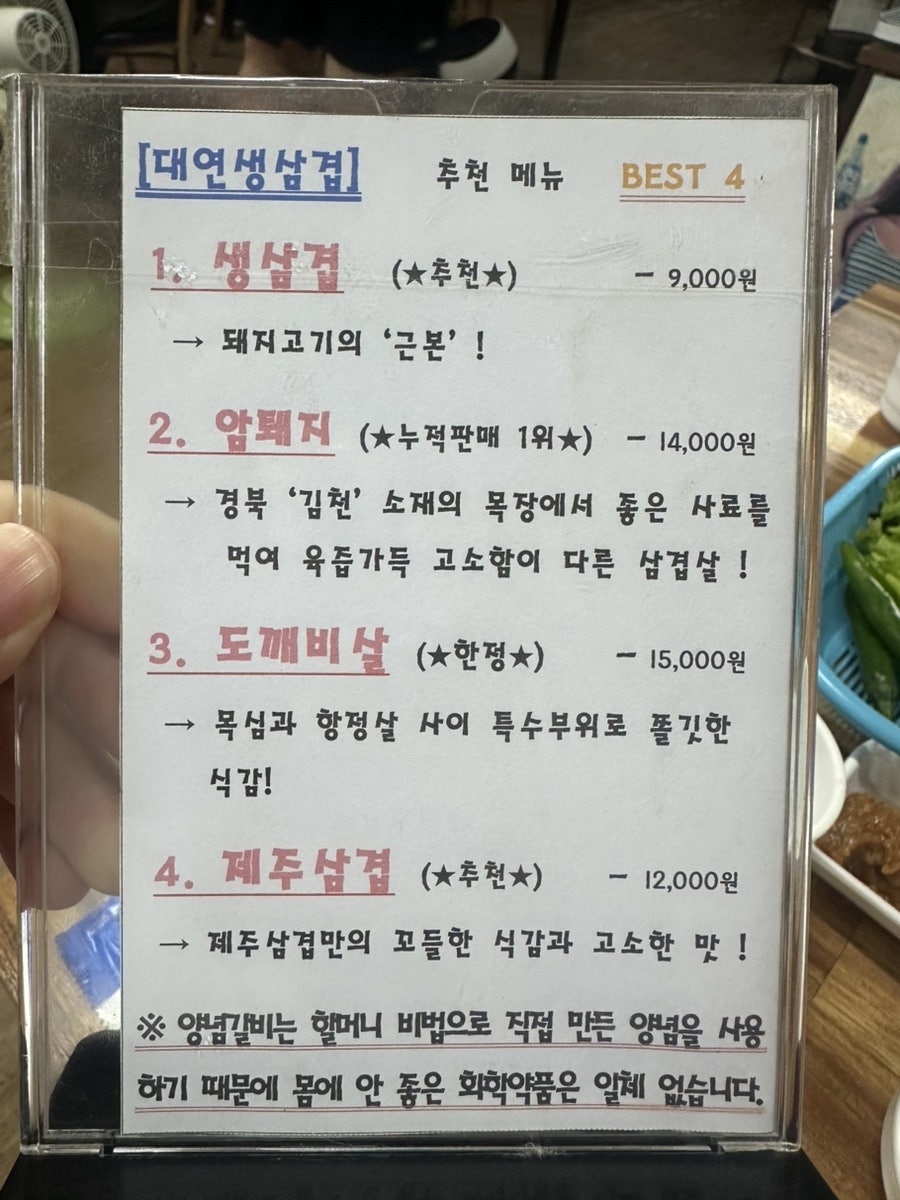 [대연생삼겹] 추천 메뉴 BEST 4
1. 생삼겹 (★추천★) - 9,000원
→ 돼지고기의 ‘근본’ !
2. 암퇘지 (★누적판매 1위★) - 14,000원
→ 경북 ‘김천’ 소재의 목장에서 좋은 사료를
먹여 육즙가득 고소함이 다른 삼겹살 !
3. 도깨비살 (★한정★) - 15,000원
→ 목심과 항정살 사이 특수부위로 쫄깃한
식감!
4. 제주삼겹 (★추천★) - 12,000원
→ 제주삼겹만의 꼬들한 식감과 고소한 맛 !
※ 양념갈비는 핼머니 비법으로 직접 만든 양념을 사용
하기 때문에 몸에 안 좋은 화학약품은 일체 없습니다.